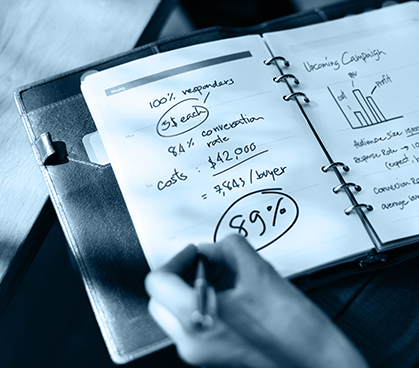 100% responders
5$ each
84% conversation
rate
costs: $42,000
= 7,84$/buyer
89%
Upcoming Campaign
profit
Audience Size
Response Rate →
(expect
conversion Ra
average